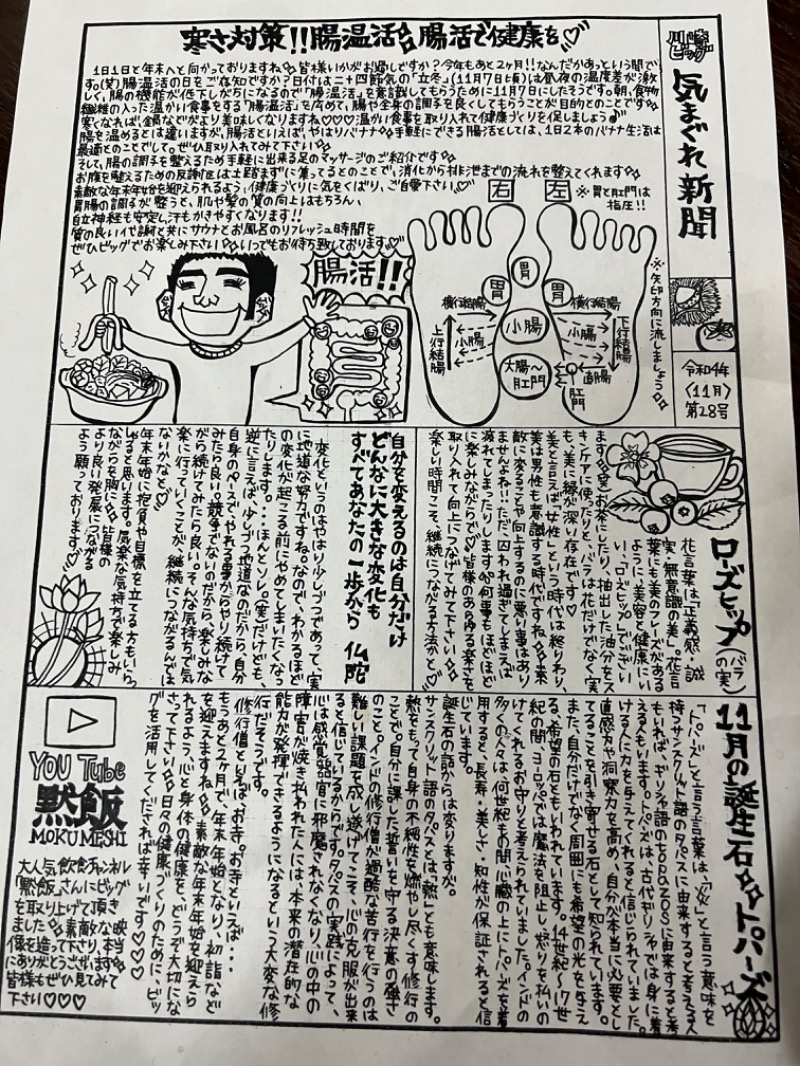 川崎
ビッグ
気まぐれ新聞
令和4年
〈11月〉
第28号
寒さ対策!!腸温活☆腸活で健康を♡
1日1日と年末へと向かっておりますね☆皆様いかがお過しですか?今年もあと2ヶ月!!なんだかあっという間で
す。(笑)腸温活の日をご存知ですか?日付は二十四節気の「立冬」(11月7日頃)は昼夜の温度差が激
しく、腸の機能が低下しがちになるので「腸温活」を意識してもらうために11月7日にしたそうです。朝、食物
繊維の入った温かい食事をする「腸温活」を広めて、腸や全身の調子を良くしてもらうことが目的とのことです☆
寒くなれば、鍋などがより美味しくなりますね♡♡♡温かい食事を取り入れて健康づくりを促しましょう♪
腸を温めるとは違いますが、腸活といえば、やはりバナナ☆手軽にできる腸活としては、1日2本のバナナ生活は
最適とのことでして。ぜひ取り入れてみて下さい☆
そして、腸の調子を整えるため手軽に出来る足のマッサージのご紹介です☆
お腹を整えるための反射区は土踏まずに集ってるとのことで、消化から排泄までの流れを整えてくれます☆
素敵な年末年始を迎えられるよう、健康づくりに気をくばり、ご自愛下さい♡
胃腸の調子が整うと、肌や髪の質の向上はもちろん、
自立神経も安定し、汗もかきやすくなります!!
質の良い代謝と共にサウナとお風呂のリフレッシュ時間を
ぜひビッグでお楽しみ下さい☆いつでもお待ち致しております♡
腸活!!
右
左
※胃と肛門は
指圧!!
※矢印方向に流しましょう☆
胃
胃
胃
横行結腸
横行結腸
上行結腸
小腸
小腸
小腸
下行結腸
大腸〜
肛門
直腸
肛門
ローズヒップ(バラの実)
花言葉は「正義感・誠
実・無意識の美」。花言
葉にも美のフレーズがある
ように、美容と健康にい
い、「ローズヒップ」でござい
ます☆実をお茶にしたり、抽出した油分をス
キンケアに使ったりと、バラは花だけでなく、実
も、美に縁が深い存在です♡
美と言えば女性!という時代は終りわり、
美は男性も意識する時代ですね☆素
敵に変ることや向上するのに悪い事はあり
ませんよね!!ただ、囚われ過ぎてしまえば
疲れてしまったりします☆何事もほどほど
に楽しみながらで♡皆様のあらゆる楽さを
取り入れて向上につなげてみて下さい☆
楽しい時間こそ、継続につながる方法かと♡
自分を変えるのは自分だけ
どんなに大きな変化も
すべてあなたの一歩から　仏陀
変化というのはやはり少しづつであって、実
に地道な努力ですね。なので、わかるほど
の変化が起こる前にやめてしまいたくなっ
たりします。・・・ほんとソレ。(笑)だけども、
逆に言えば、少しづつ地道なのだから、自分
自身のペースで、やれる事からやり続けて
みたら良い。競争でないのだから、楽しみな
がら続けてみたら良い。そんな気持ちで気
楽に行っていくことが、継続につながるんでは
ないかなと♡
年末年始に抱負や目標を立てる方もいらっ
しゃると思います。気楽な気持ちで楽しみ
ながらを胸に☆皆様の
より良い発展につながる
よう願っております♡
11月の誕生石☆トパーズ
「トパーズ」と言う言葉は、「火」と言う意味を
持つサンスクリット語のタパスに由来すると考える人
もいれば、ギリシャ語のtopazosに由来すると考
える人もいます。トパーズは、古代ギリシャでは身に着
ける人に力を与えてくれると信じられていました。
直感力や洞察力を高め、自分が本当に必要とし
てることを引き寄せる石として知られています。
また、自分だけでなく周囲にも希望の光を与え
る、希望の石ともいわれています。14世紀〜17世
紀の間、ヨーロッパでは魔法を阻止し、怒りを払いの
けてくれるお守りと考えられていました。インドの
多くの人々は、何世紀もの間、心臓の上にトパーズを着
用すると、長寿・美しさ・知性が保証されると信
じています。
誕生石の話からは変りますが。
サンスクリット語のタパスとは、「熱」とも意味します。
熱をもって自身の不純性を燃やし尽くす修行の
ことが、自分に課した誓いを守る決意の強さ
のこと。インドの修行僧が過酷な苦行を行うのは
難しい課題を成し遂げてこそ、心の克服が出来
ると信じているからです。タパスの実践によって、
心は感覚器官に邪魔されなくなり、心の中の
障害が焼き払われた人には、本来の潜在的な
能力が発揮できるようになる。という大変な修
行だそうです。
修行僧といえば、お寺。お寺といえば・・・
もうあと2ヶ月で、年末年始となり、初詣など
を迎えますね☆素敵な年末年始を迎えら
れるよう、心と身体の健康を、どうぞ大切にな
さって下さい☆日々の健康づくりのために、ビッ
グを活用してくだされば幸いです♡♡♡
YOU Tube
黙飯
MOKU MESHI
大人気飲食チャンネル
「黙飯」さんにビッグ
を取り上げて頂き
ました!!素敵な映
像を造って下さり本当
にありがとうございます☆
皆様もぜひ見てみて
下さい♡♡♡